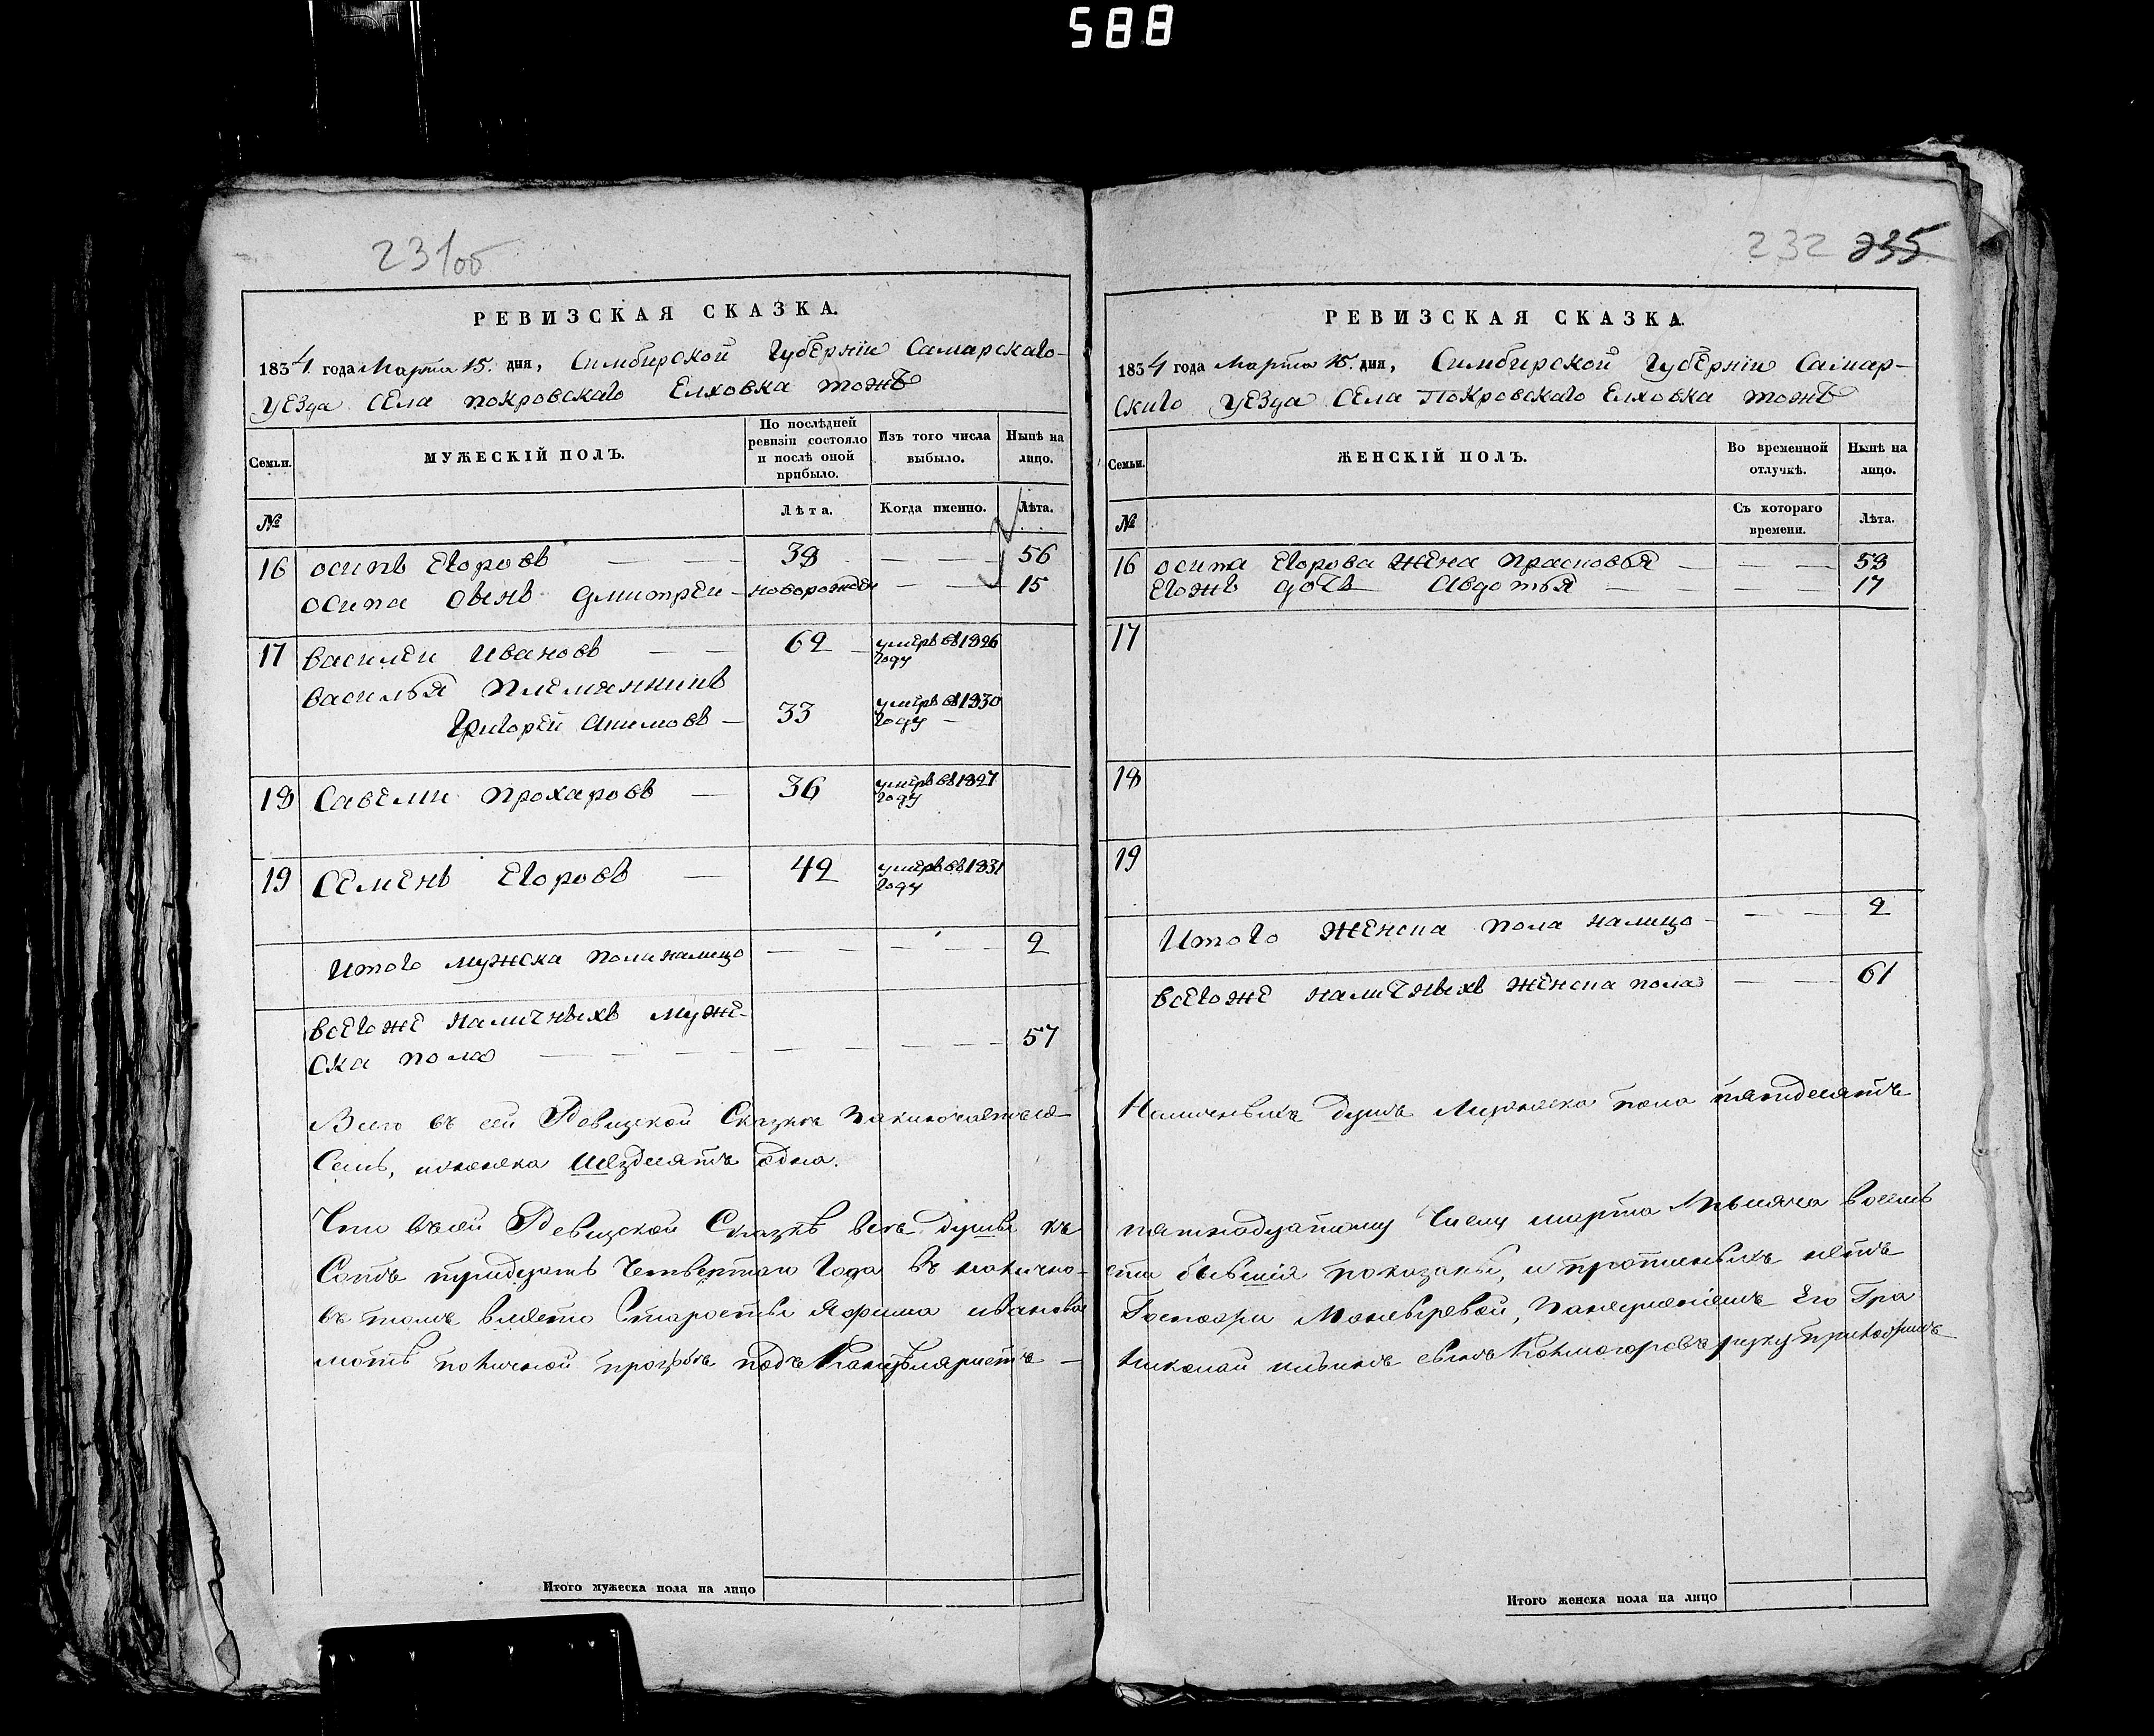 588
231об
РЕВИЗСКАЯ СКАЗКА.
1834 года Марта 15. дня, Симбирской Губерніи Самарскаго
уезда Села Покровскаго Елховка тожъ
Семьи.
МУЖЕСКІЙ ПОЛЪ.
По послѣдней ревизіи состояло и послѣ оной прибыло.
Изъ того числа выбыло.
Нынѣ на лицо.
№
Лѣта.
Когда именно.
Лѣта.
16 Осипъ Егоровъ — — 38 — — — 56
Осипа сынъ Дмитрей — новорожден — — 15
17 Василеи Ивановъ — — 62 — умеръ въ 1826 году
Василья племянникъ
Григорей Акимовъ — 33 умеръ въ 1830 году —
18 Савели Прохаровъ — 36 умеръ въ 1827 году
19 Семенъ Егоровъ — 42 умеръ въ 1831 году
Итого мужска пола налицо — — — — 2
Всегоже наличныхъ муже-
ска пола — — — — — — — 57
Всего въ сей Ревизской Сказке заключается
Семь, женска шездесятъ одна.
Что въ сей Ревизской Сказкѣ все души къ
Сотъ тридцать Четвертаго Года въ налично-
въ томъ вместо Старосты Ефима Иванова
подъ Канцеляристъ —
Итого мужеска пола на лицо
232 235
РЕВИЗСКАЯ СКАЗКА.
1834 года Марта 15. дня, Симбирской Губерніи Самар-
скаго уезда Села Покровскаго Елховка тожъ
Семьи.
ЖЕНСКІЙ ПОЛЪ.
Во временной отлучкѣ.
Нынѣ на лицо.
№
Съ котораго времени.
Лѣта.
16 Осипа Егорова жена Прасковья — — — — 58
Егожъ дочь Авдотья — — — — — 17
17
18
19
Итого женска пола налицо — — — 2
Всегоже наличныхъ женска пола — — 61
Наличныхъ душъ Мужеска пола пятдесятъ
пятнадцатому Числу марта Месяца восемь
сти бывшія показаны, и прописныхъ нетъ
Госпожи
Николай сынъ руку приложилъ
Итого женска пола на лицо